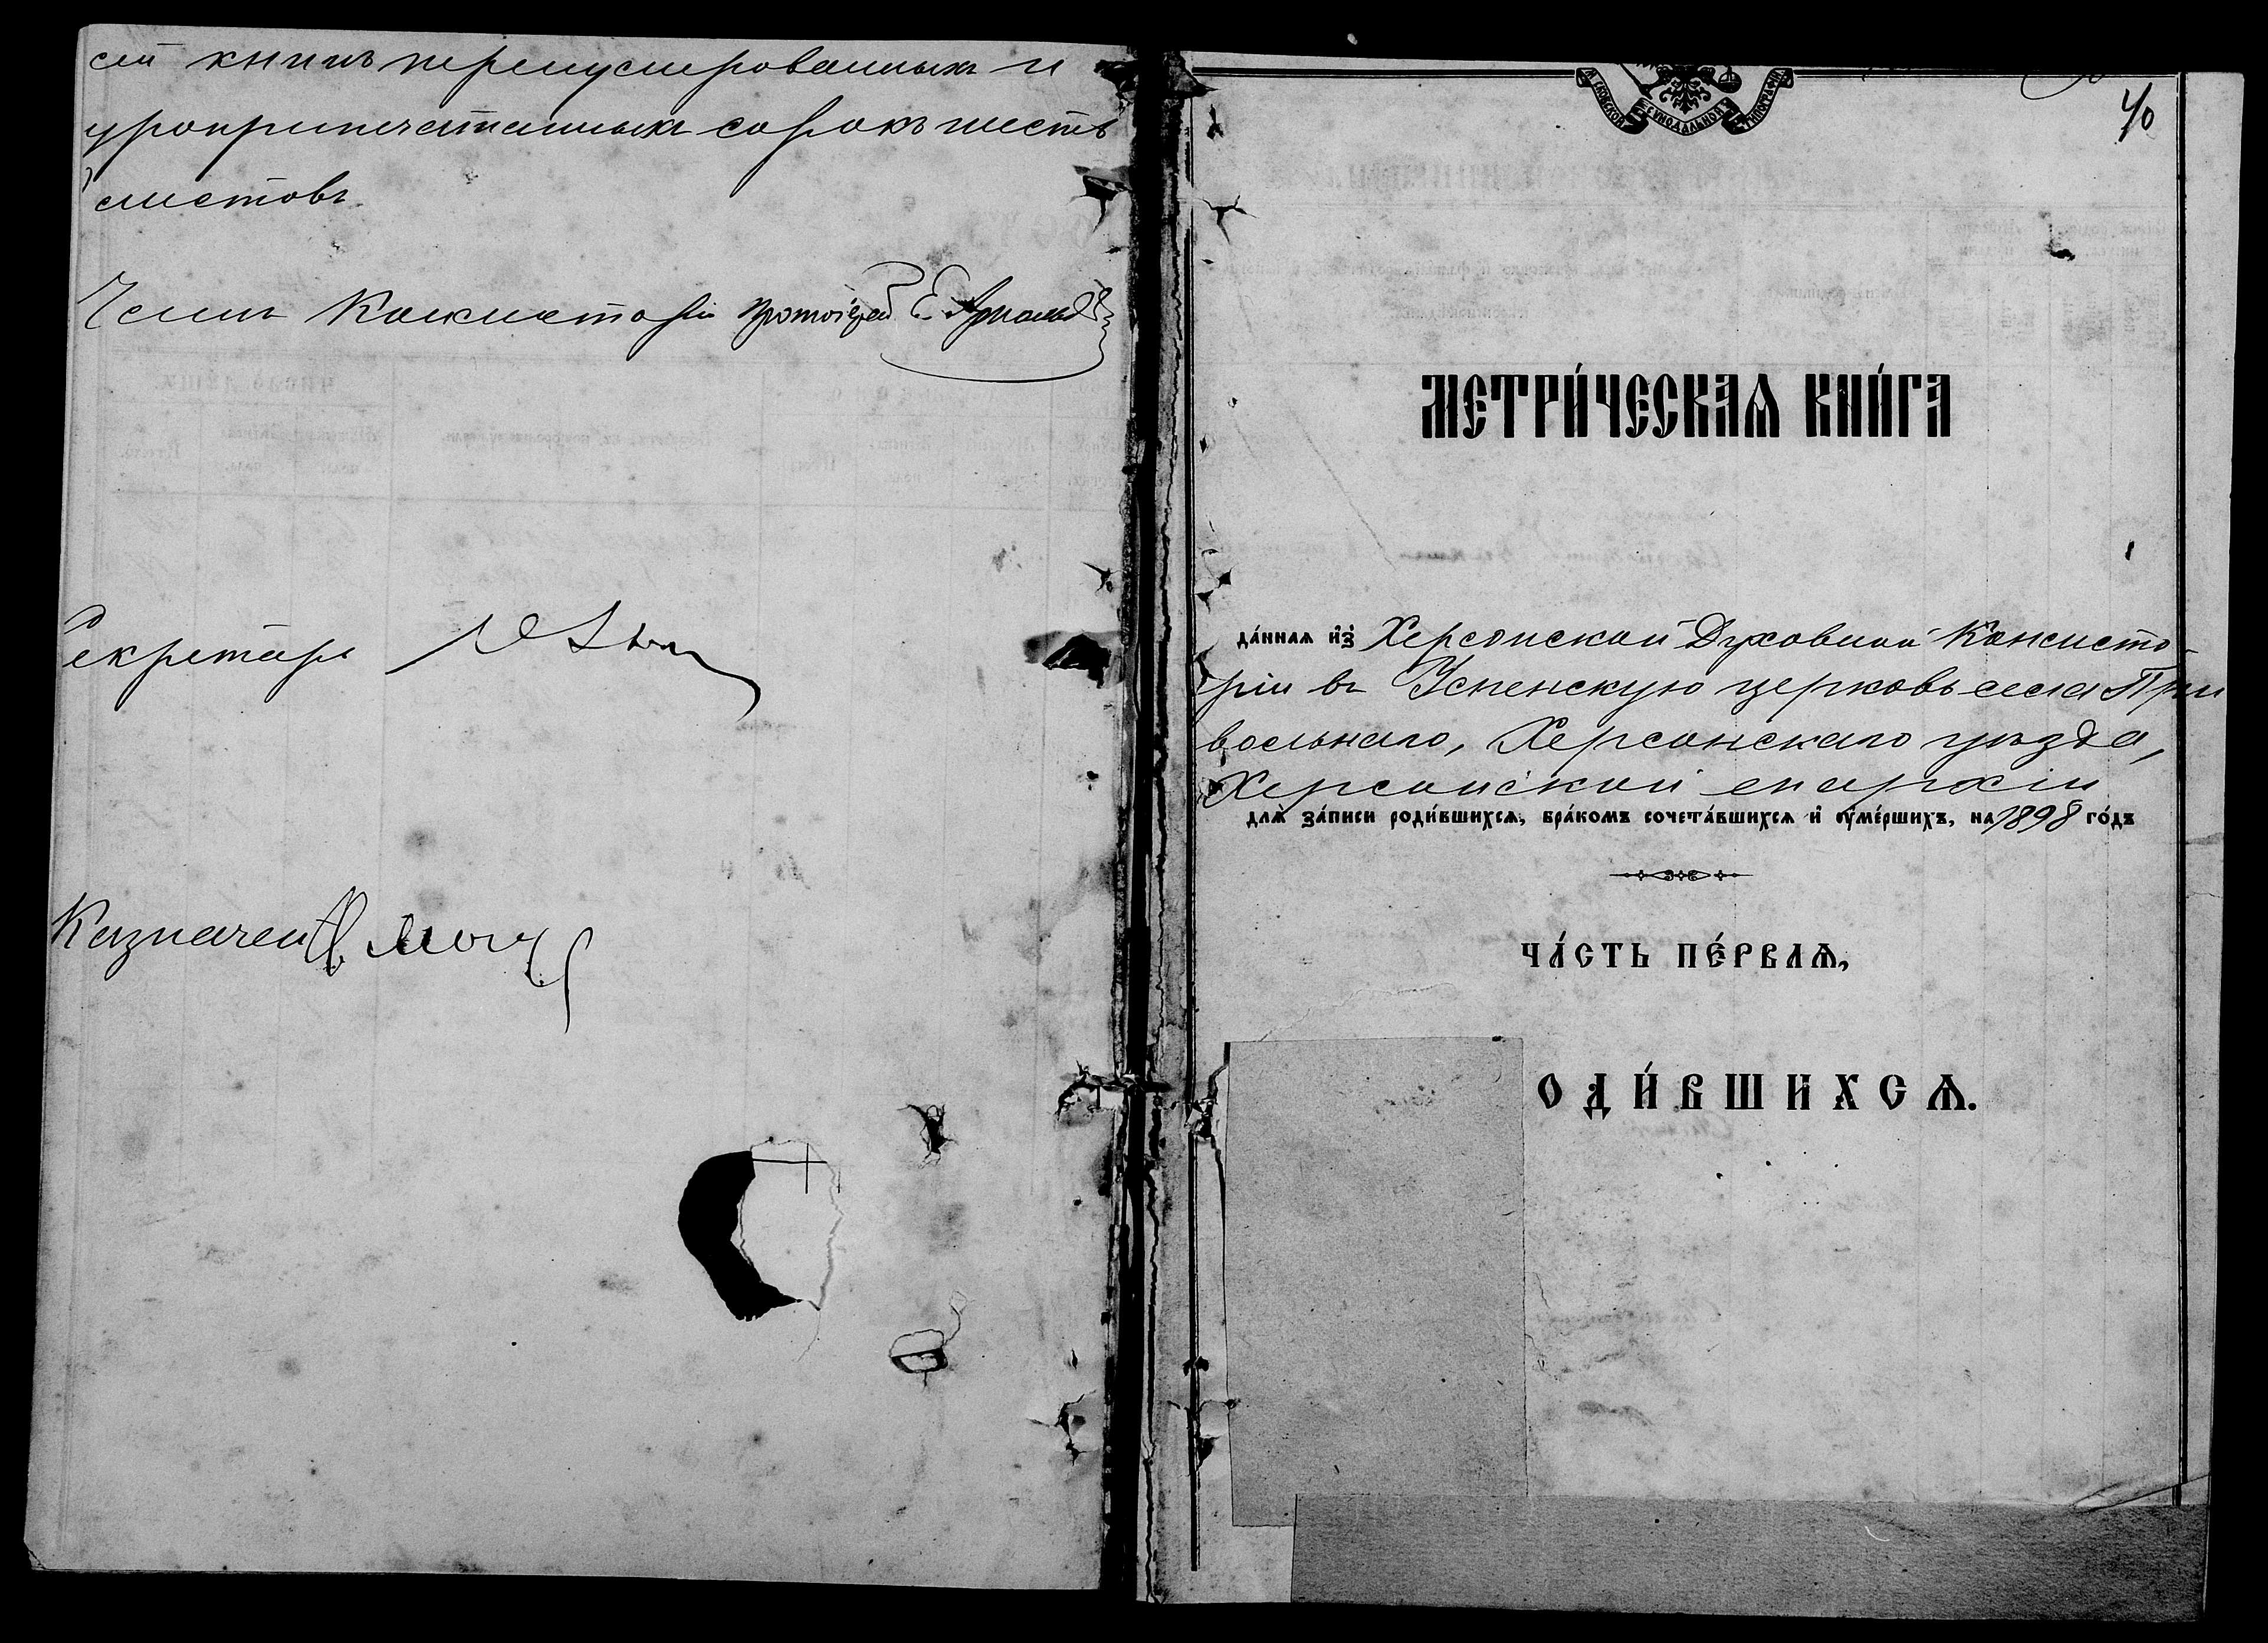 сей книгѣ перенумерованныхъ и
пропечатанныхъ сорокъ шесть
листовъ.
Членъ Консисторіи Протоіерей Е. Арнольд
Секретарь
Казначей
МОСКОВСКОЙ СѴНОДАЛЬНОЙ ТИПОГРАФІИ
40
МЕТРИ́ЧЕСКАѦ КНИ́ГА
да́ннаѧ и҆з̾ Херсонской Духовной Консисто-
ріи въ Успенскую церковь села При
вольнаго, Херсонскаго уѣзда,
Херсонской епархіи
длѧ̀ за́писи роди́вшихсѧ, бра́комъ сочета́вшихсѧ и҆ оу҆ме́ршихъ, на 1898 го́дъ
ЧА́СТЬ ПЕ́РВАѦ,
ОДИ́ВШИХСѦ.